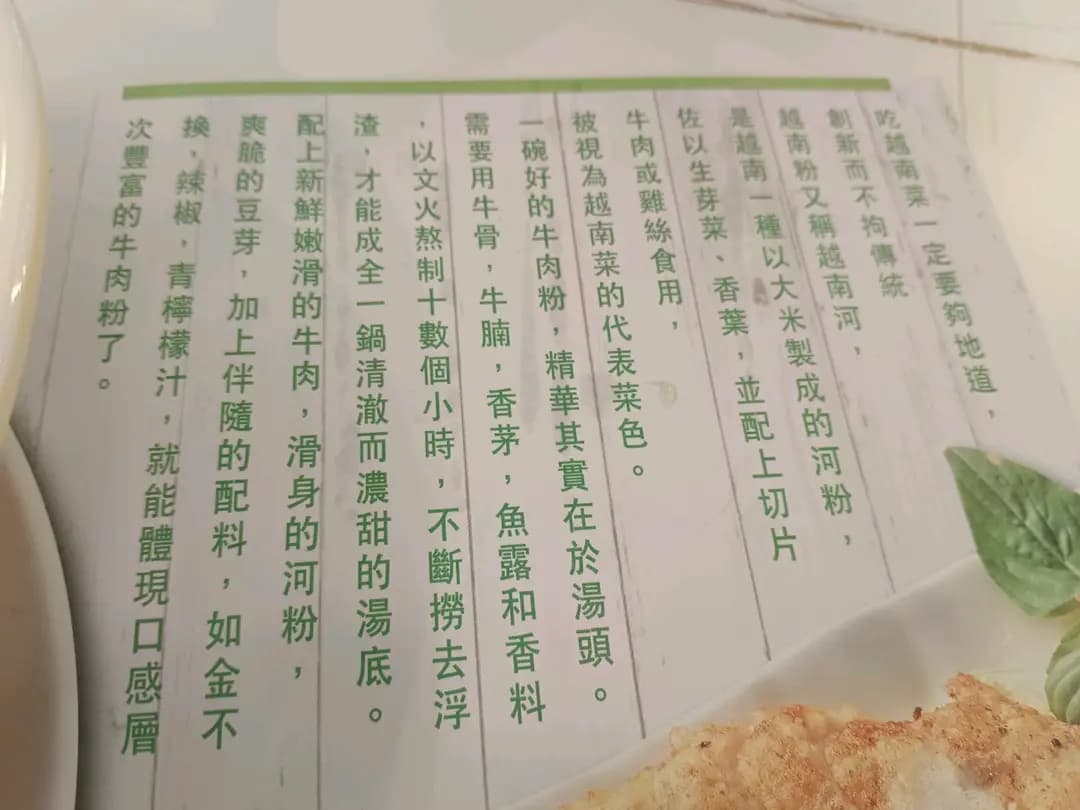 吃越南菜一定要夠地道，
創新而不拘傳統
越南粉又稱越南河，
越南一種以大米製成的河粉，
佐以生芽菜、香葉，並配上切片
牛肉或雞絲食用，
被視為越南菜的代表菜色。
一碗好的牛肉粉，精華其實在於湯頭。
需要用牛骨，牛腩，香茅，魚露和香料
，以文火熬制十數個小時，不斷撈去浮
渣，才能成全一鍋清澈而濃甜的湯底。
配上新鮮嫩滑的牛肉，滑身的河粉，
爽脆的豆芽，加上伴隨的配料，如金不
換，辣椒，青檸檬汁，就能體現口感層
次豐富的牛肉粉了。